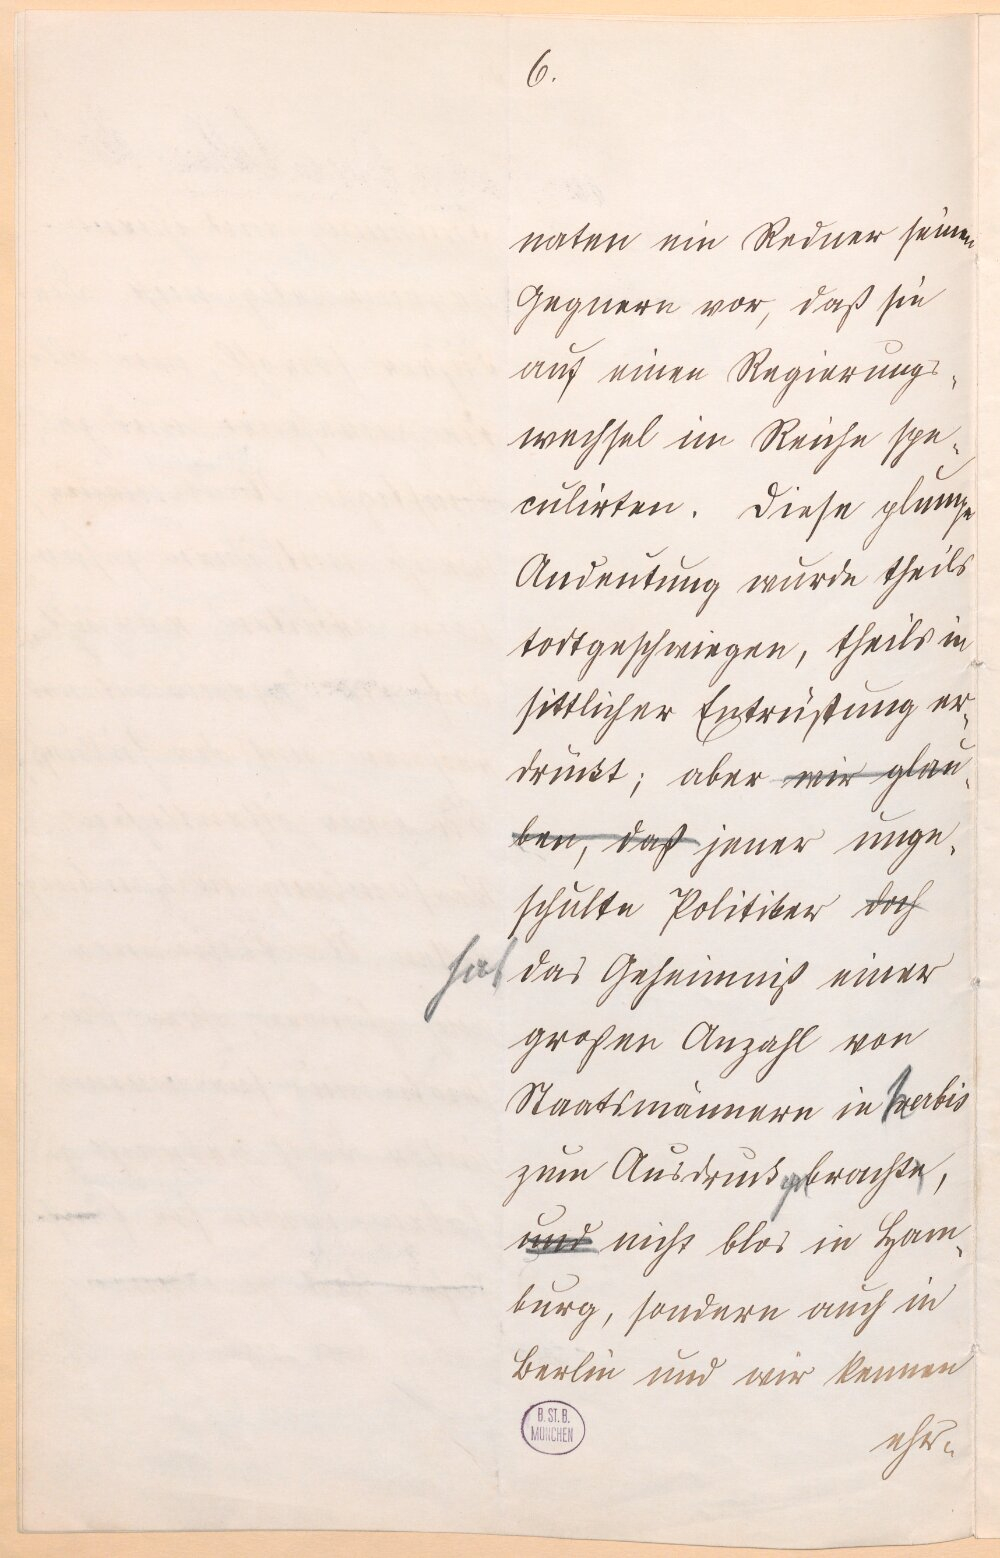 6.
naten ein Redner seinen
Gegnern vor, daß sie
auf einen Regierungs-
wechsel im Reiche spe-
culirten. Diese plumpe
Andeutung wurde theils
todtgeschwiegen, theils in
sittlicher Entrüstung er-
drückt; aber wir glau-
ben, daß jener unge-
schulte Politiker doch
hat das Geheimniß einer
großen Anzahl von
Staatsmännern in verbis
zum Ausdruck gebracht,
und nicht blos in Ham-
burg, sondern auch in
Berlin und wir kennen
ehr-
B. ST. B.
MÜNCHEN